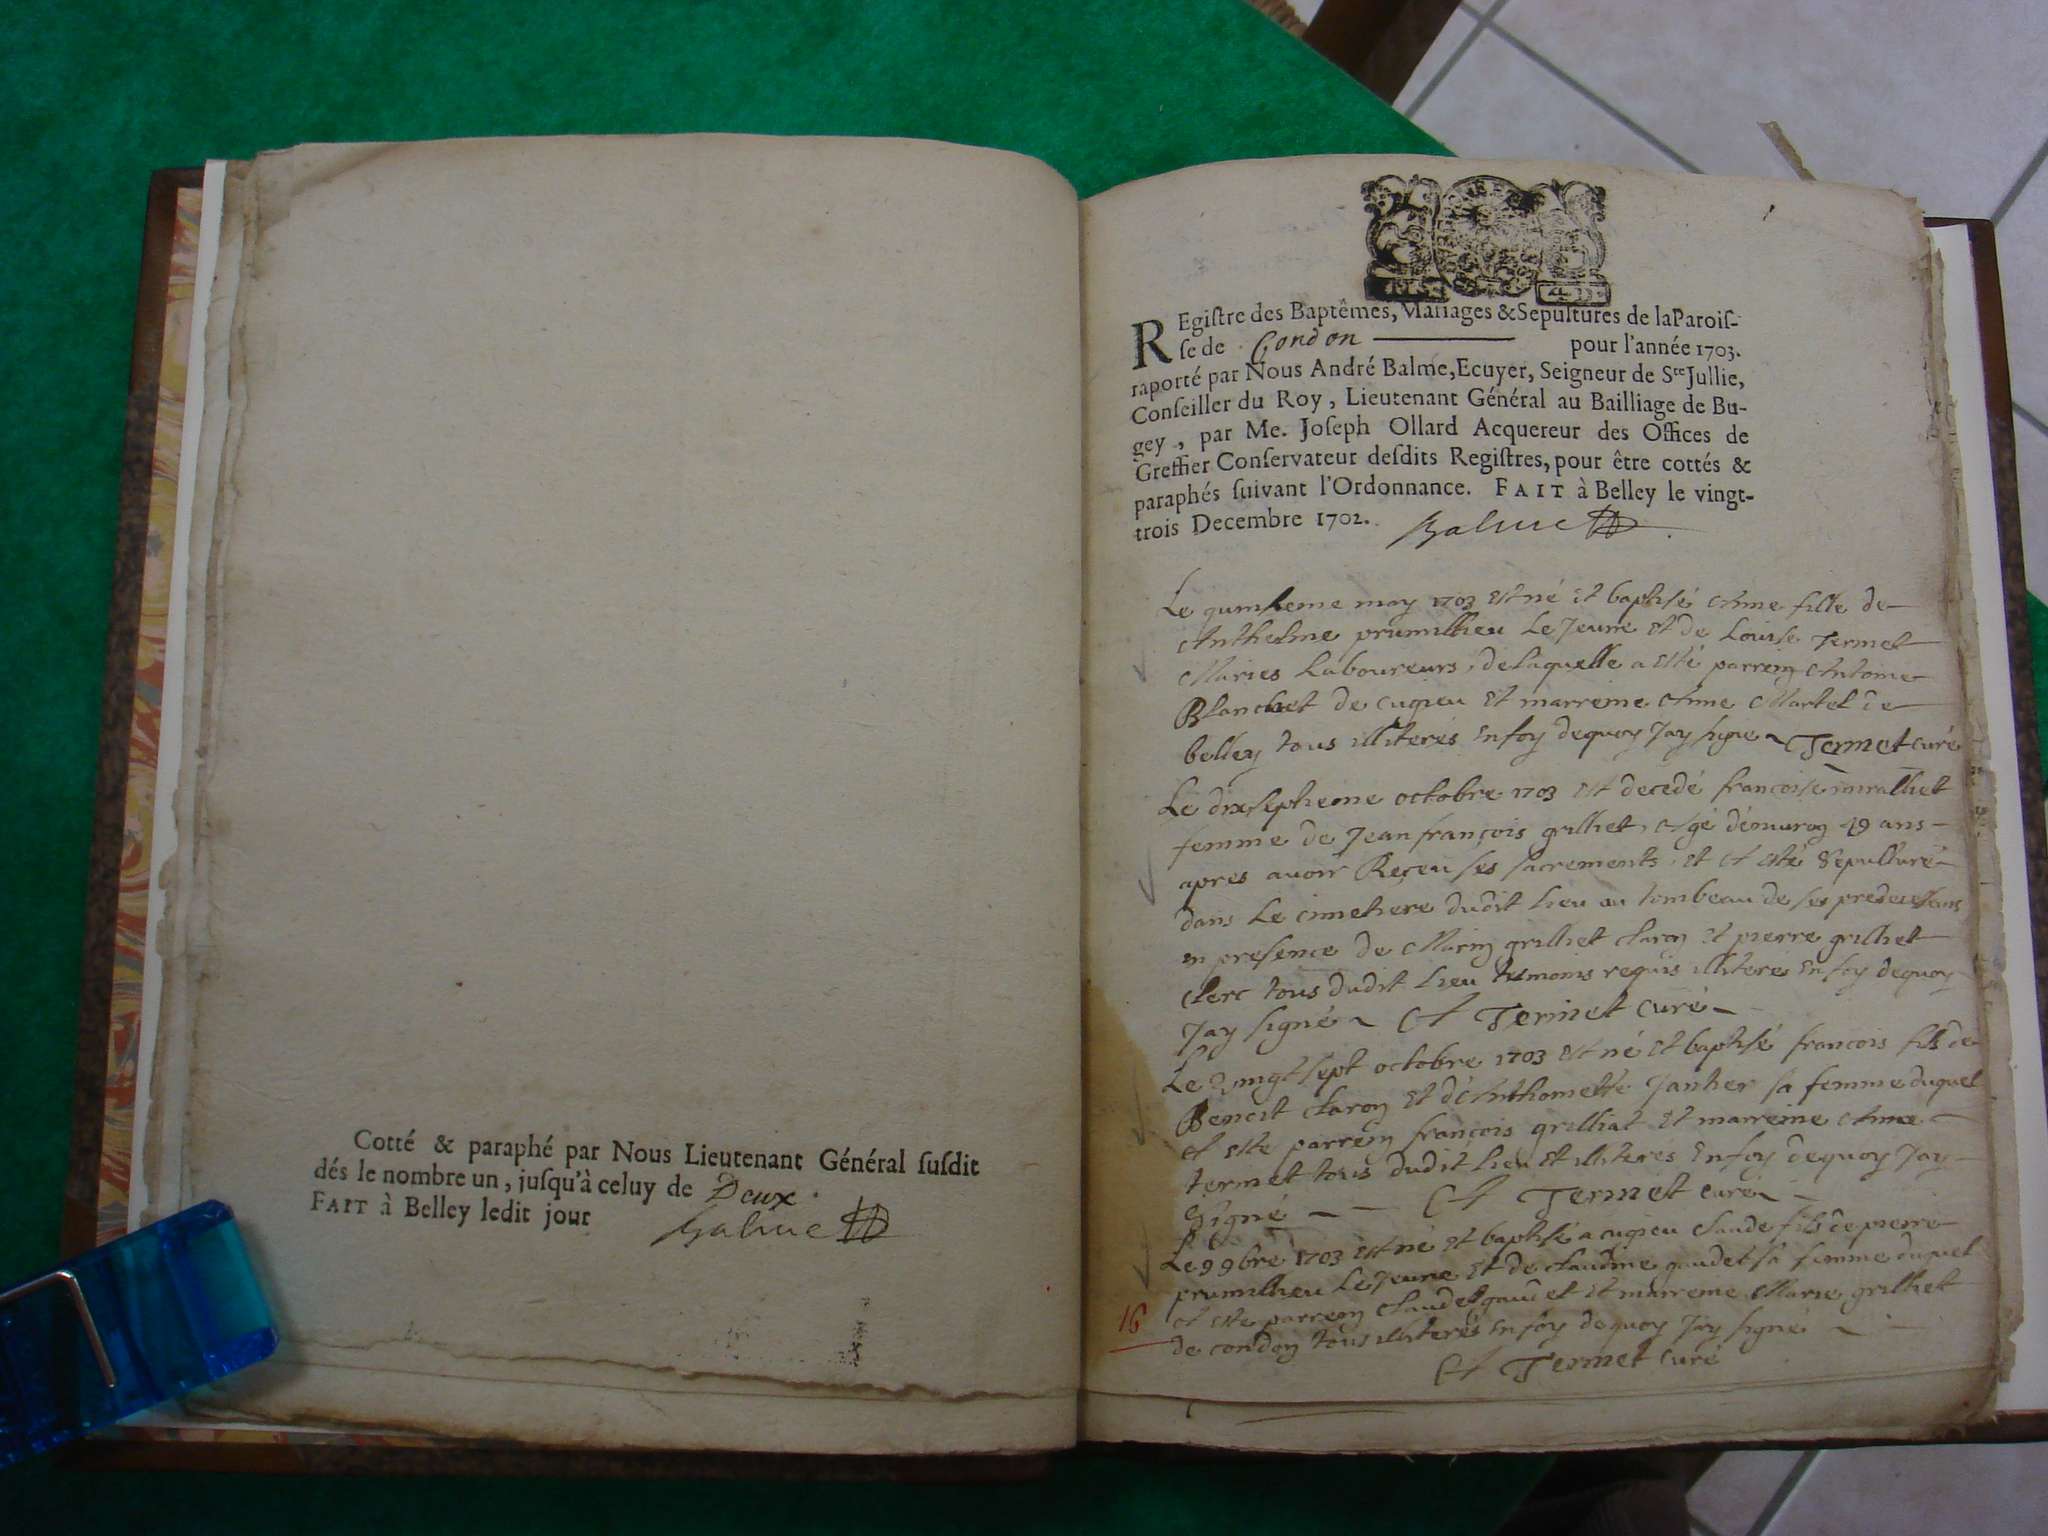 Cotté & paraphé par Nous Lieutenant Général susdit
dés le nombre un, jusqu'à celuy de Deux.
FAIT à Belley ledit jour Balme
REgistre des Baptêmes, Mariages & Sepultures de la Parois-
se de Condon pour l'année 1703.
raporté par Nous André Balme, Ecuyer, Seigneur de Ste Jullie,
Conseiller du Roy, Lieutenant Général au Bailliage de Bu-
gey, par Me. Joseph Ollard Acquereur des Offices de
Greffier Conservateur desdits Registres, pour être cottés &
paraphés suivant l'Ordonnance. FAIT à Belley le vingt-
trois Decembre 1702. Balme
Le quinsieme may 1703 est né et baptisé Anne fille de
Anthelme prumillieu Le Jeune et de Louise Termet
Maries Laboureurs, delaquelle a esté parrein Antoine
Blanchet de cugieu et marreine Anne Martel de
belley tous illiterés En foy dequoy Jay signe Termet curé
Le dixseptieme octobre 1703 est decedé francoise
femme de Jean françois grilliet, Agé d'enuiron 49 ans
apres auoir Reçeu ses sacrements et A esté Sepulturé
dans Le cimetiere dudit Lieu au tombeau de ses predecesseurs
en presence de Marin grilliet claron et pierre grilliet
clerc tous dudit Lieu tesmoins requis illiterés En foy dequoy
Jay signé A Termet curé
Le Vingt sept octobre 1703 est né et baptisé francois fils de
Benoit claron et d'Anthomette Janher sa femme duquel
A esté parrein françois grilliat et marreine Anne
termet tous dudit Lieu et illiterés En foy dequoy Jay
Signé A Termet curé
Le 9 9bre 1703 est né et baptisé a cugieu claude fils de pierre
prumillieu Le Jeune et de claudine gaudet sa femme duquel
A esté parrein claude gaudet et marreine Marie grilliet
de condon tous illiterés En foy dequoy Jay signé
A Termet curé
16